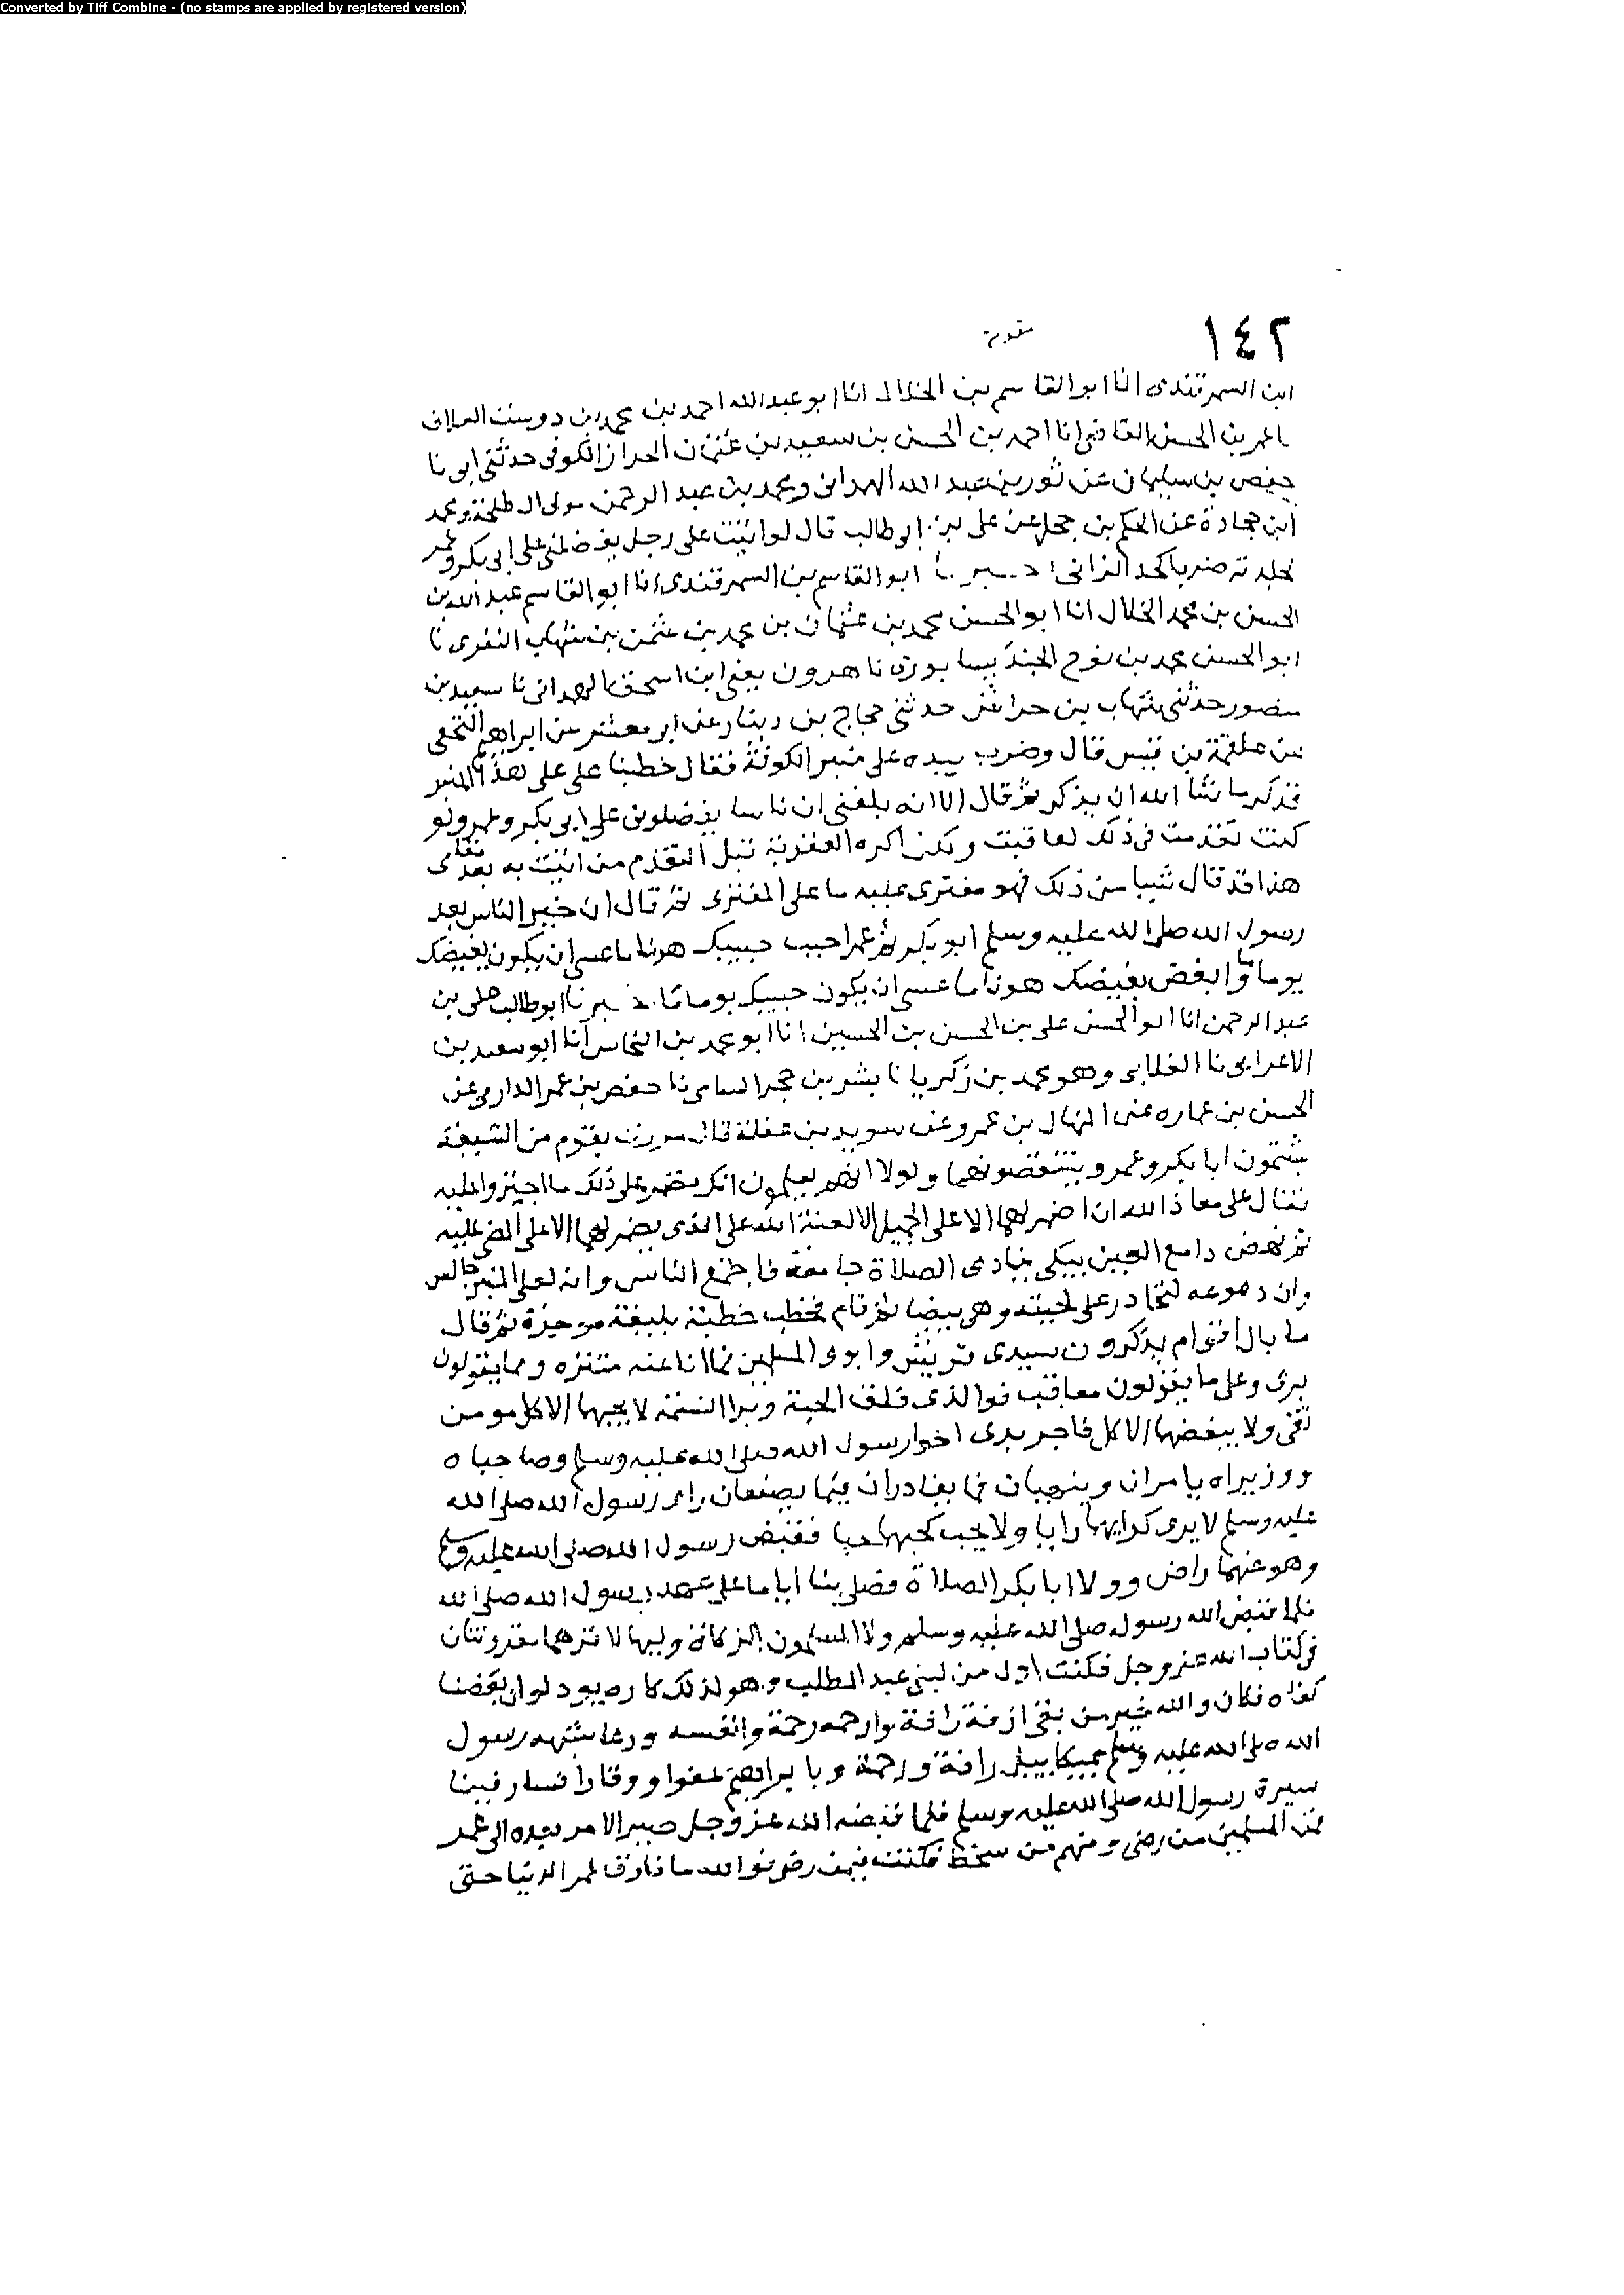 Converted by Tiff Combine - (no stamps are applied by registered version)
١٤٢
ابن السمرقندى انا ابو القاسم بن الخلال انا ابو عبد الله احمد بن محمد بن دوست العلاف
بن الحسن القاضى انا احمد بن الحسن بن سعيد بن عثمان الخراز الكوفى حدثنى ابى نا
حفص بن سليمان عن ثور بن عبد الله الهمدانى ومحمد بن عبد الرحمن مولى ال طلحة ومحمد
ابن جحادة عن الحكم بن جحل عن على بن ابى طالب قال لو اتيت على رجل يفضلنى على ابى بكر وعمر
لجلدته ضربا كحد الزانى ابو القاسم بن السمرقندى انا ابو القاسم عبد الله بن
الحسن بن محمد الخلال انا ابو الحسن محمد بن عثمان بن محمد بن عثمن بن شهاب النفرى نا
ابو الحسن محمد بن نوح الجند يسابورى نا هرون يعنى ابن اسحق الهمدانى نا سعيد بن
منصور حدثنى شهاب بن خراش حدثنى حجاج بن دينار عن ابى معشر عن ابراهيم النخعى
عن علقمة بن قيس قال وضرب بيده على منبر الكوفة فقال خطبنا على على هذا المنبر
فذكر ما شا الله ان يذكر ثم قال الا انه بلغنى ان ناسا يفضلونى على ابى بكر وعمر ولو
كنت تقدمت فى ذلك لعاقبت ولكن اكره العقوبة قبل التقدم من اتيت به بعد مقامى
هذا قد قال شيا من ذلك فهو مفترى عليه ما على المفترى ثم قال ان خير الناس بعد
رسول الله صلى الله عليه وسلم ابو بكر ثم عمر احبب حبيبك هونا ما عسى ان يكون بغيضك
يوما ما وابغض بغيضك هونا ما عسى ان يكون حبيبك يوما ما خبرنا ابو طالب على بن
عبد الرحمن انا ابو الحسن على بن الحسن بن الحسين انا ابو محمد بن النحاس انا ابو سعيد بن
الاعرابى نا الغلابى وهو محمد بن زكريا نا بشر بن حجر السامى نا حفص بن عمر الدارمى عن
الحسن بن عماره عن المنهال بن عمرو عن سويد بن غفلة قال مررت بقوم من الشيعة
يشتمون ابا بكر وعمر وينتقصونهما ولولا انهم يعلمون انك تضمر على ذلك ما اجتروا عليه
فقال على معاذ الله ان اضمر لهما الا على الجميل الا لعنة الله على الذى يضمر لهما الا على الضى عليه
ثم نهض دامع العين يبكى ينادى الصلاة جامعة فاجتمع الناس وانه لعلى المنبر جالس
وان دموعه لتحادر على لحيته وهى بيضا ثم قام فخطب خطبة بليغة موجزة ثم قال
ما بال اقوام يذكرون سيدى قريش وابوى المسلمين مما انا عنه متنزه ومما يقولون
برى وعلى ما يقولون معاقب فوالذى فلق الحبة وبرا النسمة لا يحبهما الا كل مومن
تقى ولا يبغضهما الا كل فاجر بدى اخوا رسول الله صلى الله عليه وسلم وصاحباه
ووزيراه يامران وينهيان فما يغادران فيما يصنعان راى رسول الله صلى الله
عليه وسلم لا يرى كرايهما رايا ولا يحب كحبهما حبا فقبض رسول الله صلى الله عليه وسلم
وهو عنهما راض وولا ابا بكر الصلاة فصلى بنا اياما على عهد رسول الله صلى الله
فلما قبض الله رسوله صلى الله عليه وسلم ولا المسلمون الزكاة وليها لانهما مقرونتان
فى كتاب الله عز وجل فكنت اول من لبنى عبد المطلب وهو لذلك كاره يود لو ان بعضنا
كفاه فكان والله خير من بقى ارافة رافة وارحمه رحمة وانفسه ورعا شبهه رسول
الله صلى الله عليه وسلم بميكاييل رافة ورحمة وبابراهيم عفوا ووقارا فسار فينا
سيرة رسول الله صلى الله عليه وسلم فلما قبضه الله عز وجل صير الامر بعده الى عمر
فمن المسلمين من رضى ومنهم من سخط فكنت فيمن رضى فوالله ما فارق عمر الدنيا حتى